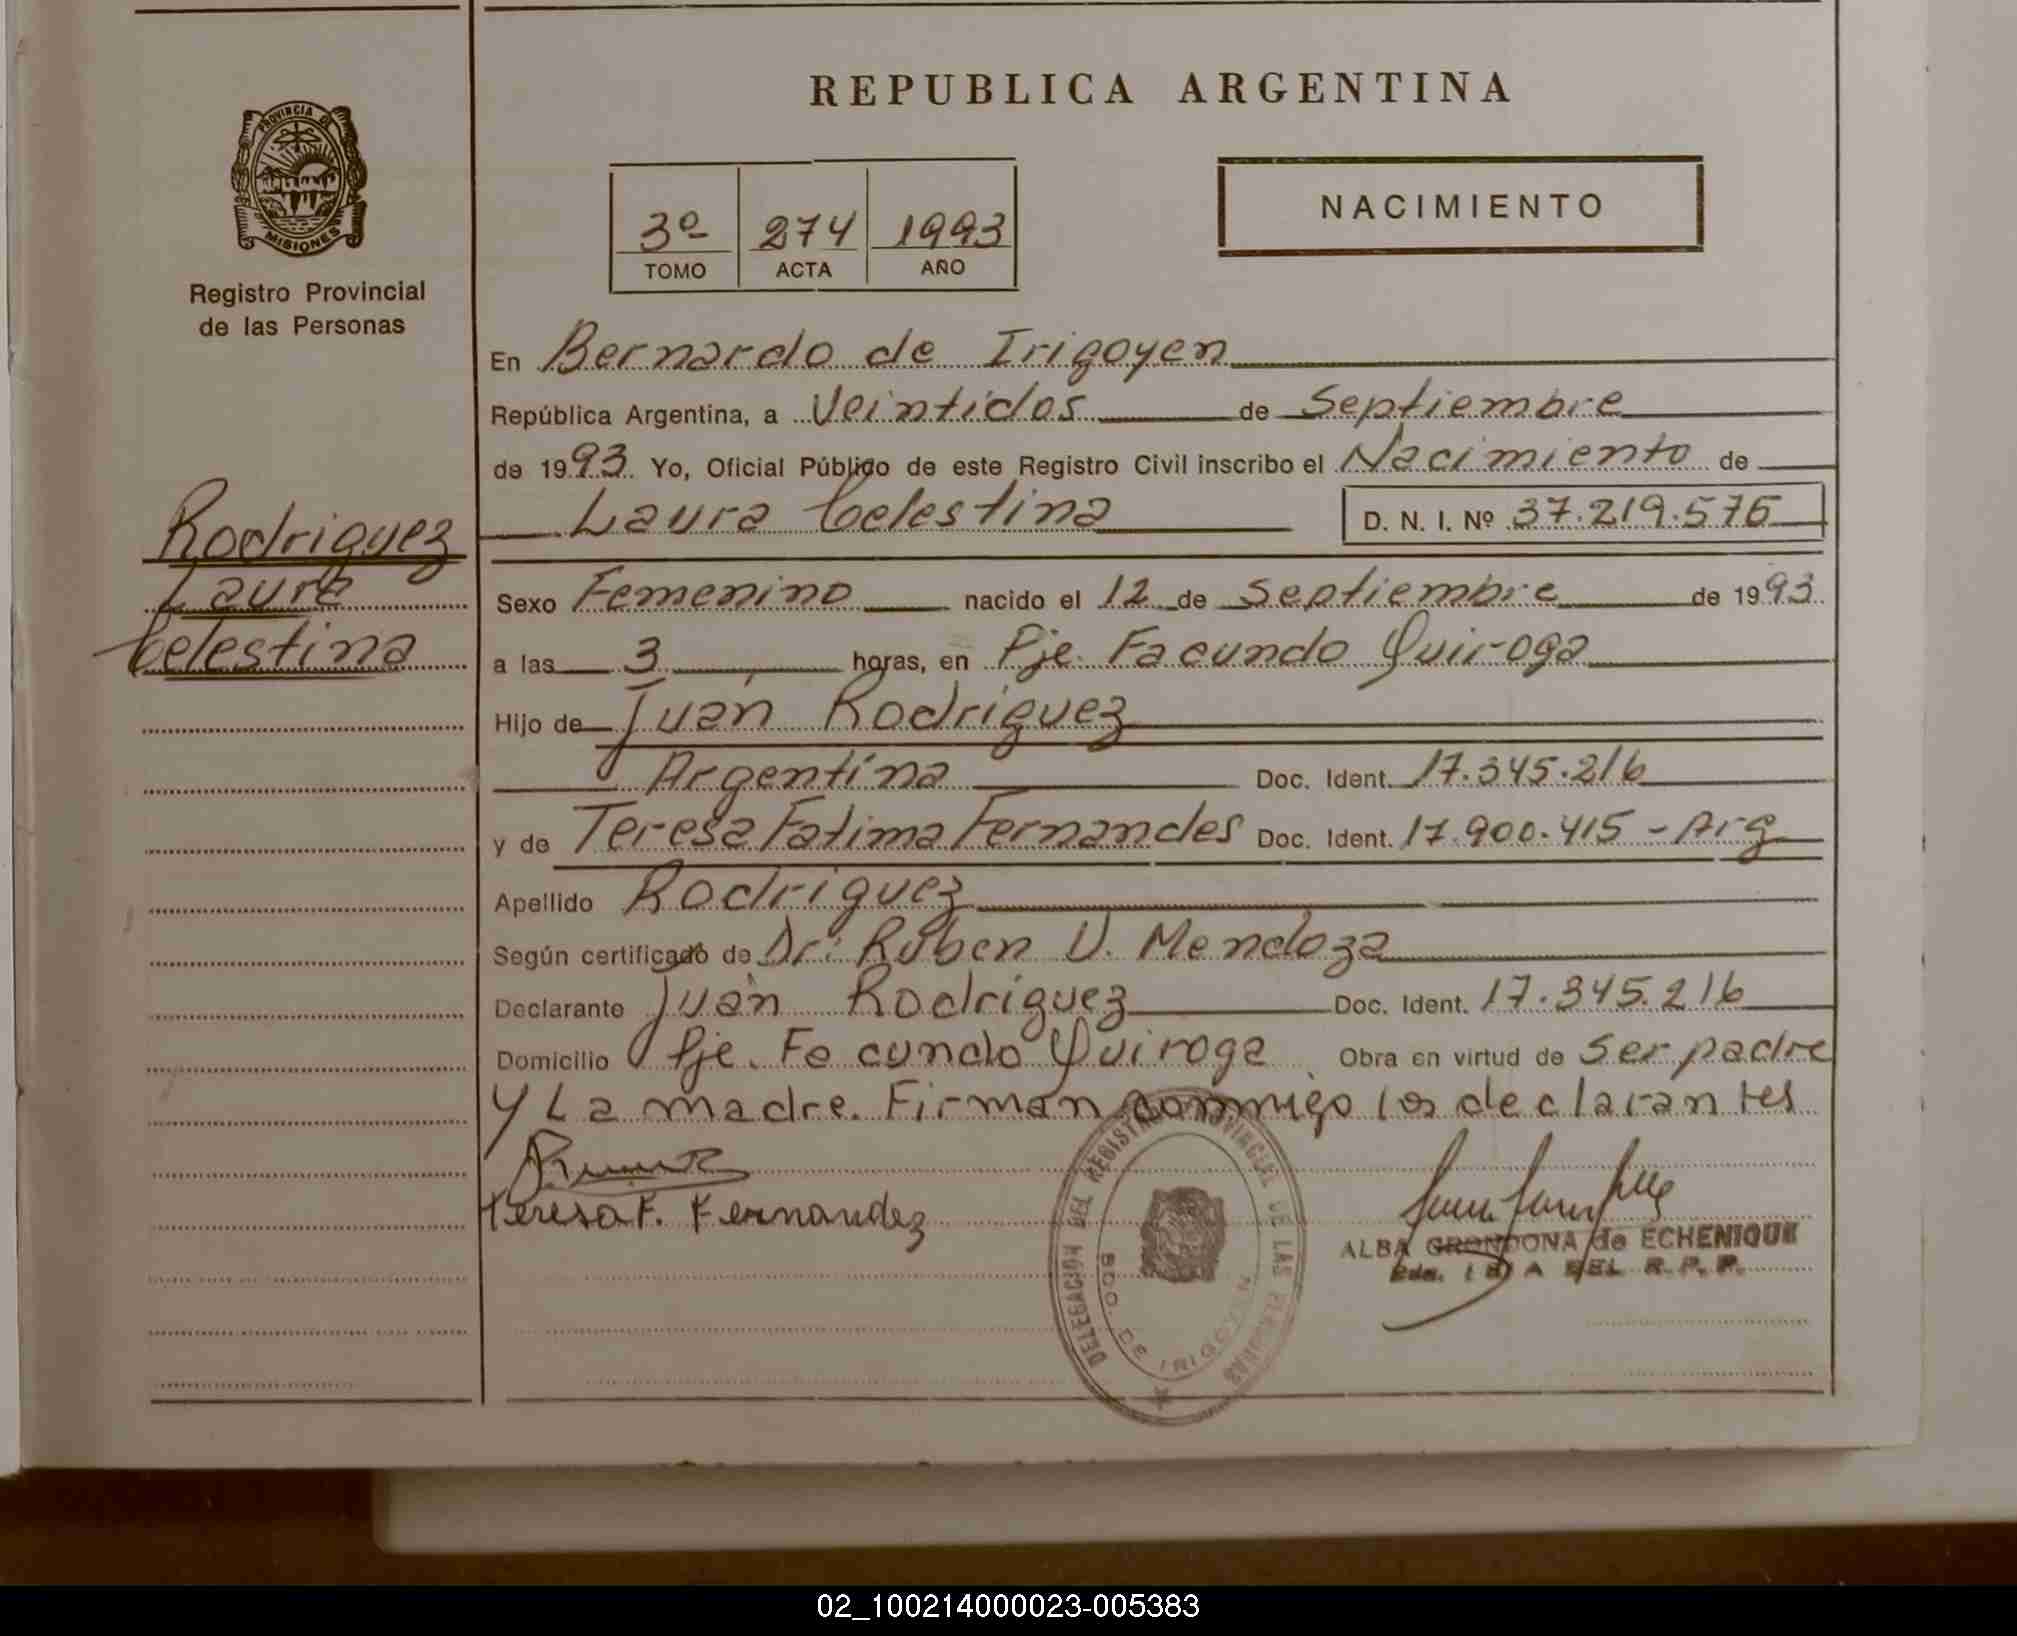 REPUBLICA ARGENTINA
PROVINCIA DE MISIONES
Registro Provincial
de las Personas
3º 274 1993
TOMO ACTA AÑO
NACIMIENTO
En Bernardo de Irigoyen
República Argentina, a Veintidos de Septiembre
de 1993. Yo, Oficial Público de este Registro Civil inscribo el Nacimiento de
Laura Celestina D. N. I. Nº 37.219.576
Rodriguez
Laura
Celestina
Sexo Femenino nacido el 12 de Septiembre de 1993
a las 3 horas, en Pje. Facundo Quiroga
Hijo de Juan Rodriguez
Argentina Doc. Ident. 17.345.216
y de Teresa Fatima Fernandes Doc. Ident. 17.900.415 - Arg
Apellido Rodriguez
Según certificado de Dr: Ruben V. Mendoza
Declarante Juan Rodriguez Doc. Ident. 17.345.216
Domicilio Pje. Facundo Quiroga Obra en virtud de Ser padre
y La madre. Firman conmigo los declarantes
Teresa F. Fernandez
DELEGACION DEL REGISTRO PROVINCIAL DE LAS PERSONAS
BDO. DE IRIGOYEN
ALBA GRONDONA de ECHENIQUE
DEL R. P. P.
02_100214000023-005383